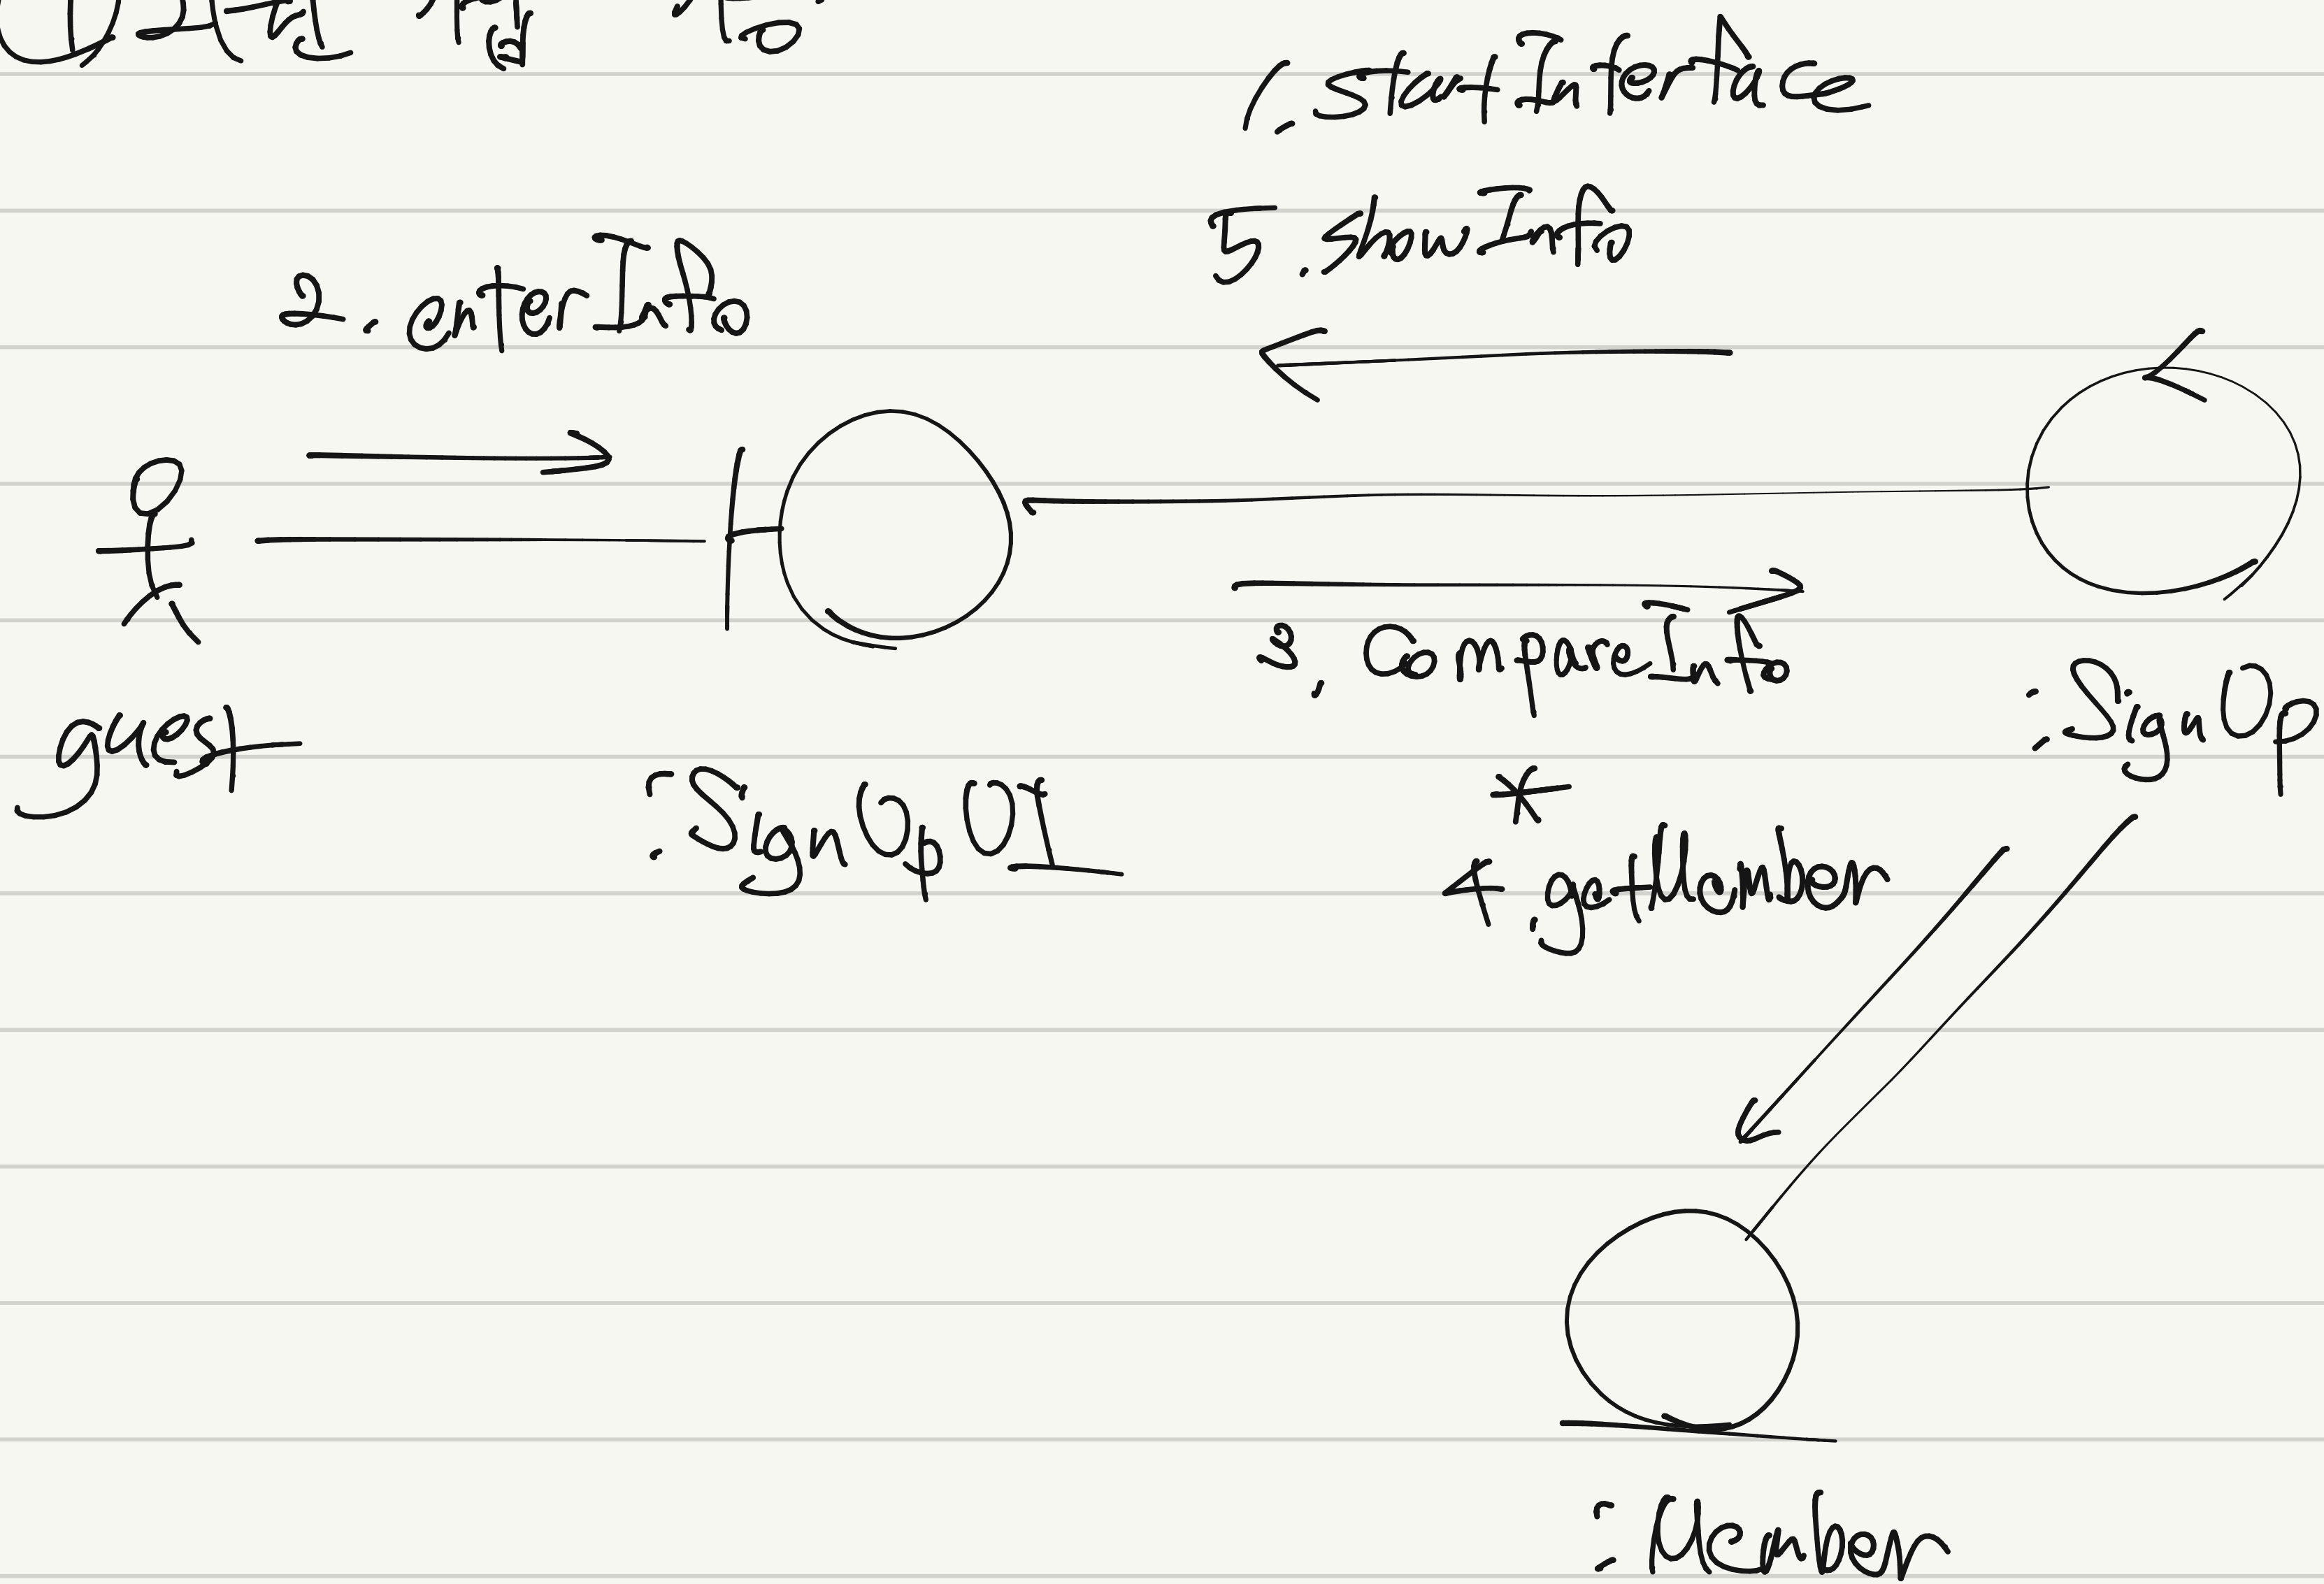 1. startInterface
5. showInfo
2. enterInfo
3. CompareInfo
guest
: SignUp
: SignUpUI
*
4. getMember
: Member